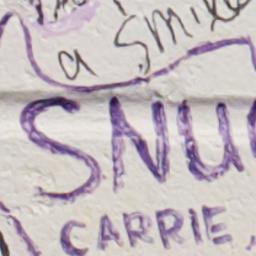 a Smile
SNU
CARRIE,